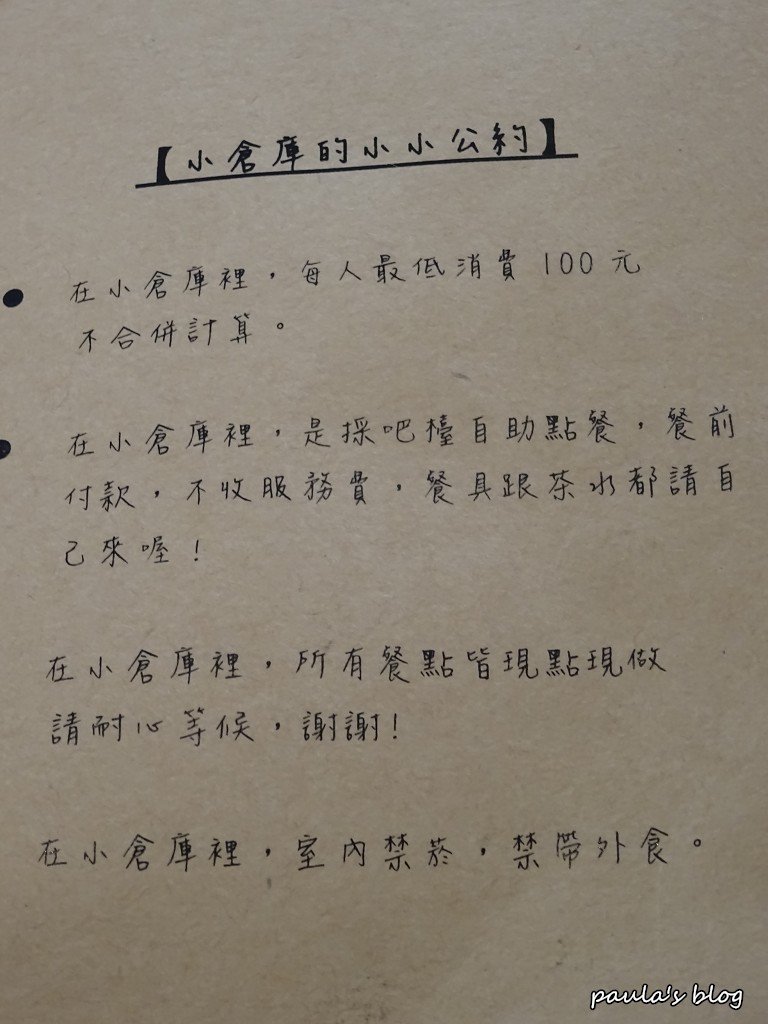 【小倉庫的小小公約】
在小倉庫裡，每人最低消費100元
不合併計算。
在小倉庫裡，是採吧檯自助點餐，餐前
付款，不收服務費，餐具跟茶水都請自
己來喔！
在小倉庫裡，所有餐點皆現點現做
請耐心等候，謝謝！
在小倉庫裡，室內禁菸，禁帶外食。
paula's blog